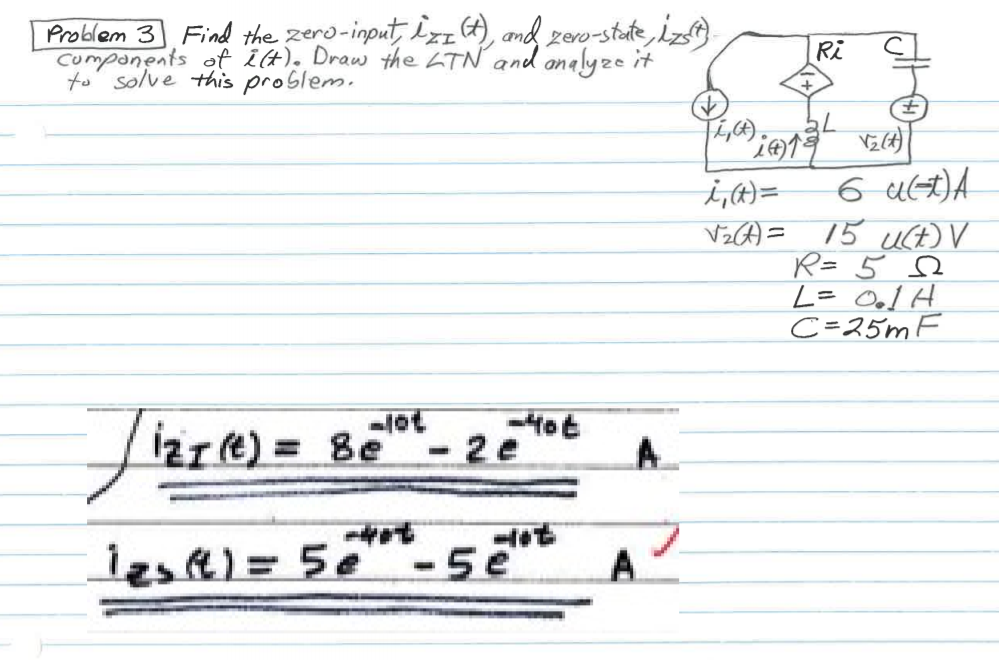 Problem 3 Find the zero-input, iZI(t), and zero-state, iZS(t)
components of i(t). Draw the LTN and analyze it
to solve this problem.
Ri
C
- +
i₁(t)
i(t)↑
L
±
v₂(t)
i₁(t) = 6 u(-t) A
v₂(t) = 15 u(t) V
R = 5 Ω
L = 0.1 H
C = 25m F
iZI(t) = 8e^-10t - 2e^-40t A
iZS(t) = 5e^-40t - 5e^-10t A